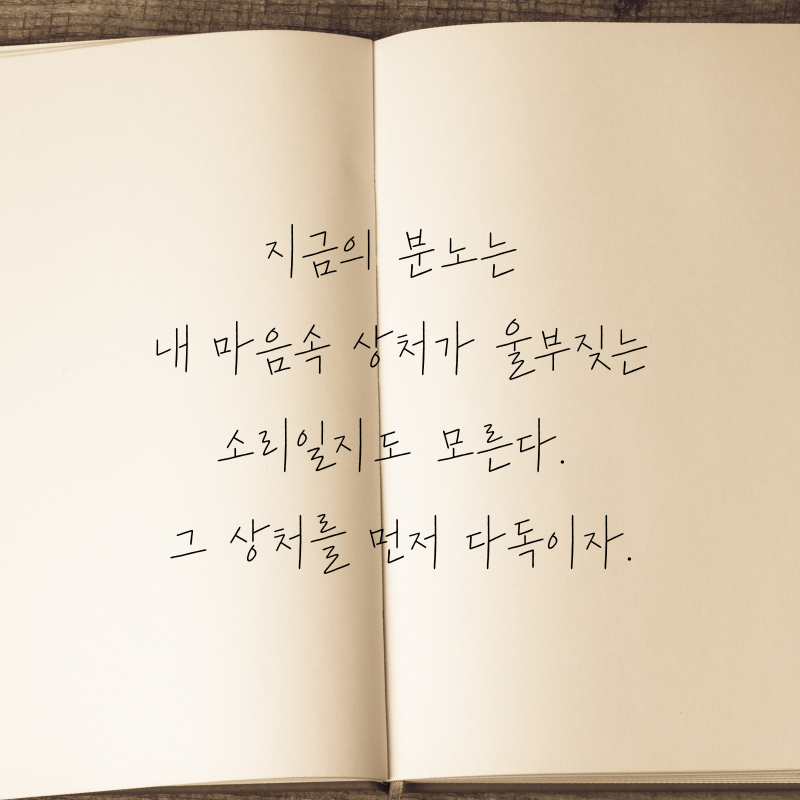 지금의 분노는
내 마음속 상처가 울부짖는
소리일지도 모른다.
그 상처를 먼저 다독이자.